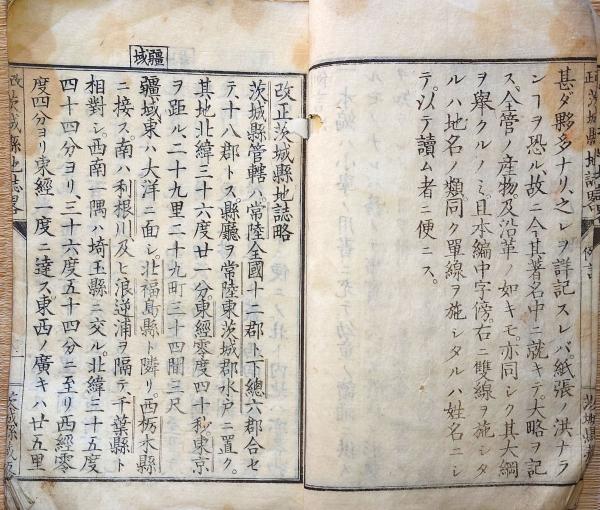 甚ダ夥多ナリ、之レヲ詳記スレバ、紙張ノ洪ナラ
ンヿヲ恐ル、故ニ今其著名中ニ就キテ、大略ヲ記
ス、全管ノ産物及沿革ノ如キモ亦同シク其大綱
ヲ舉クルノミ、且本編中字傍右ニ雙線ヲ施シタ
ルハ地名ノ類、同ク單線ヲ施シタルハ姓名ニシ
テ、以テ讀ム者ニ便ニス。
改正茨城縣地誌略
茨城縣管轄ハ常陸全國十二郡ト、下總六郡合セ
テ、十八郡トス。縣廳ヲ常陸東茨城郡水戸ニ置ク。
其地北緯三十六度廿一分、東經零度四十秒、東京
ヲ距ル、二十九里二十九町三十四間三尺
疆域
疆域東ハ大洋ニ面シ。北福島縣ト隣リ。西栃木縣
ニ接ス。南ハ利根川及ヒ浪逆浦ヲ隔テ、千葉縣ト
相對シ。西南一隅ハ埼玉縣ニ交ル。北緯三十五度
四十四分ヨリ、三十六度五十四分ニ至リ西經零
度四分ヨリ東經一度ニ達ス東西ノ廣キハ廿五里
改正茨城縣地誌略